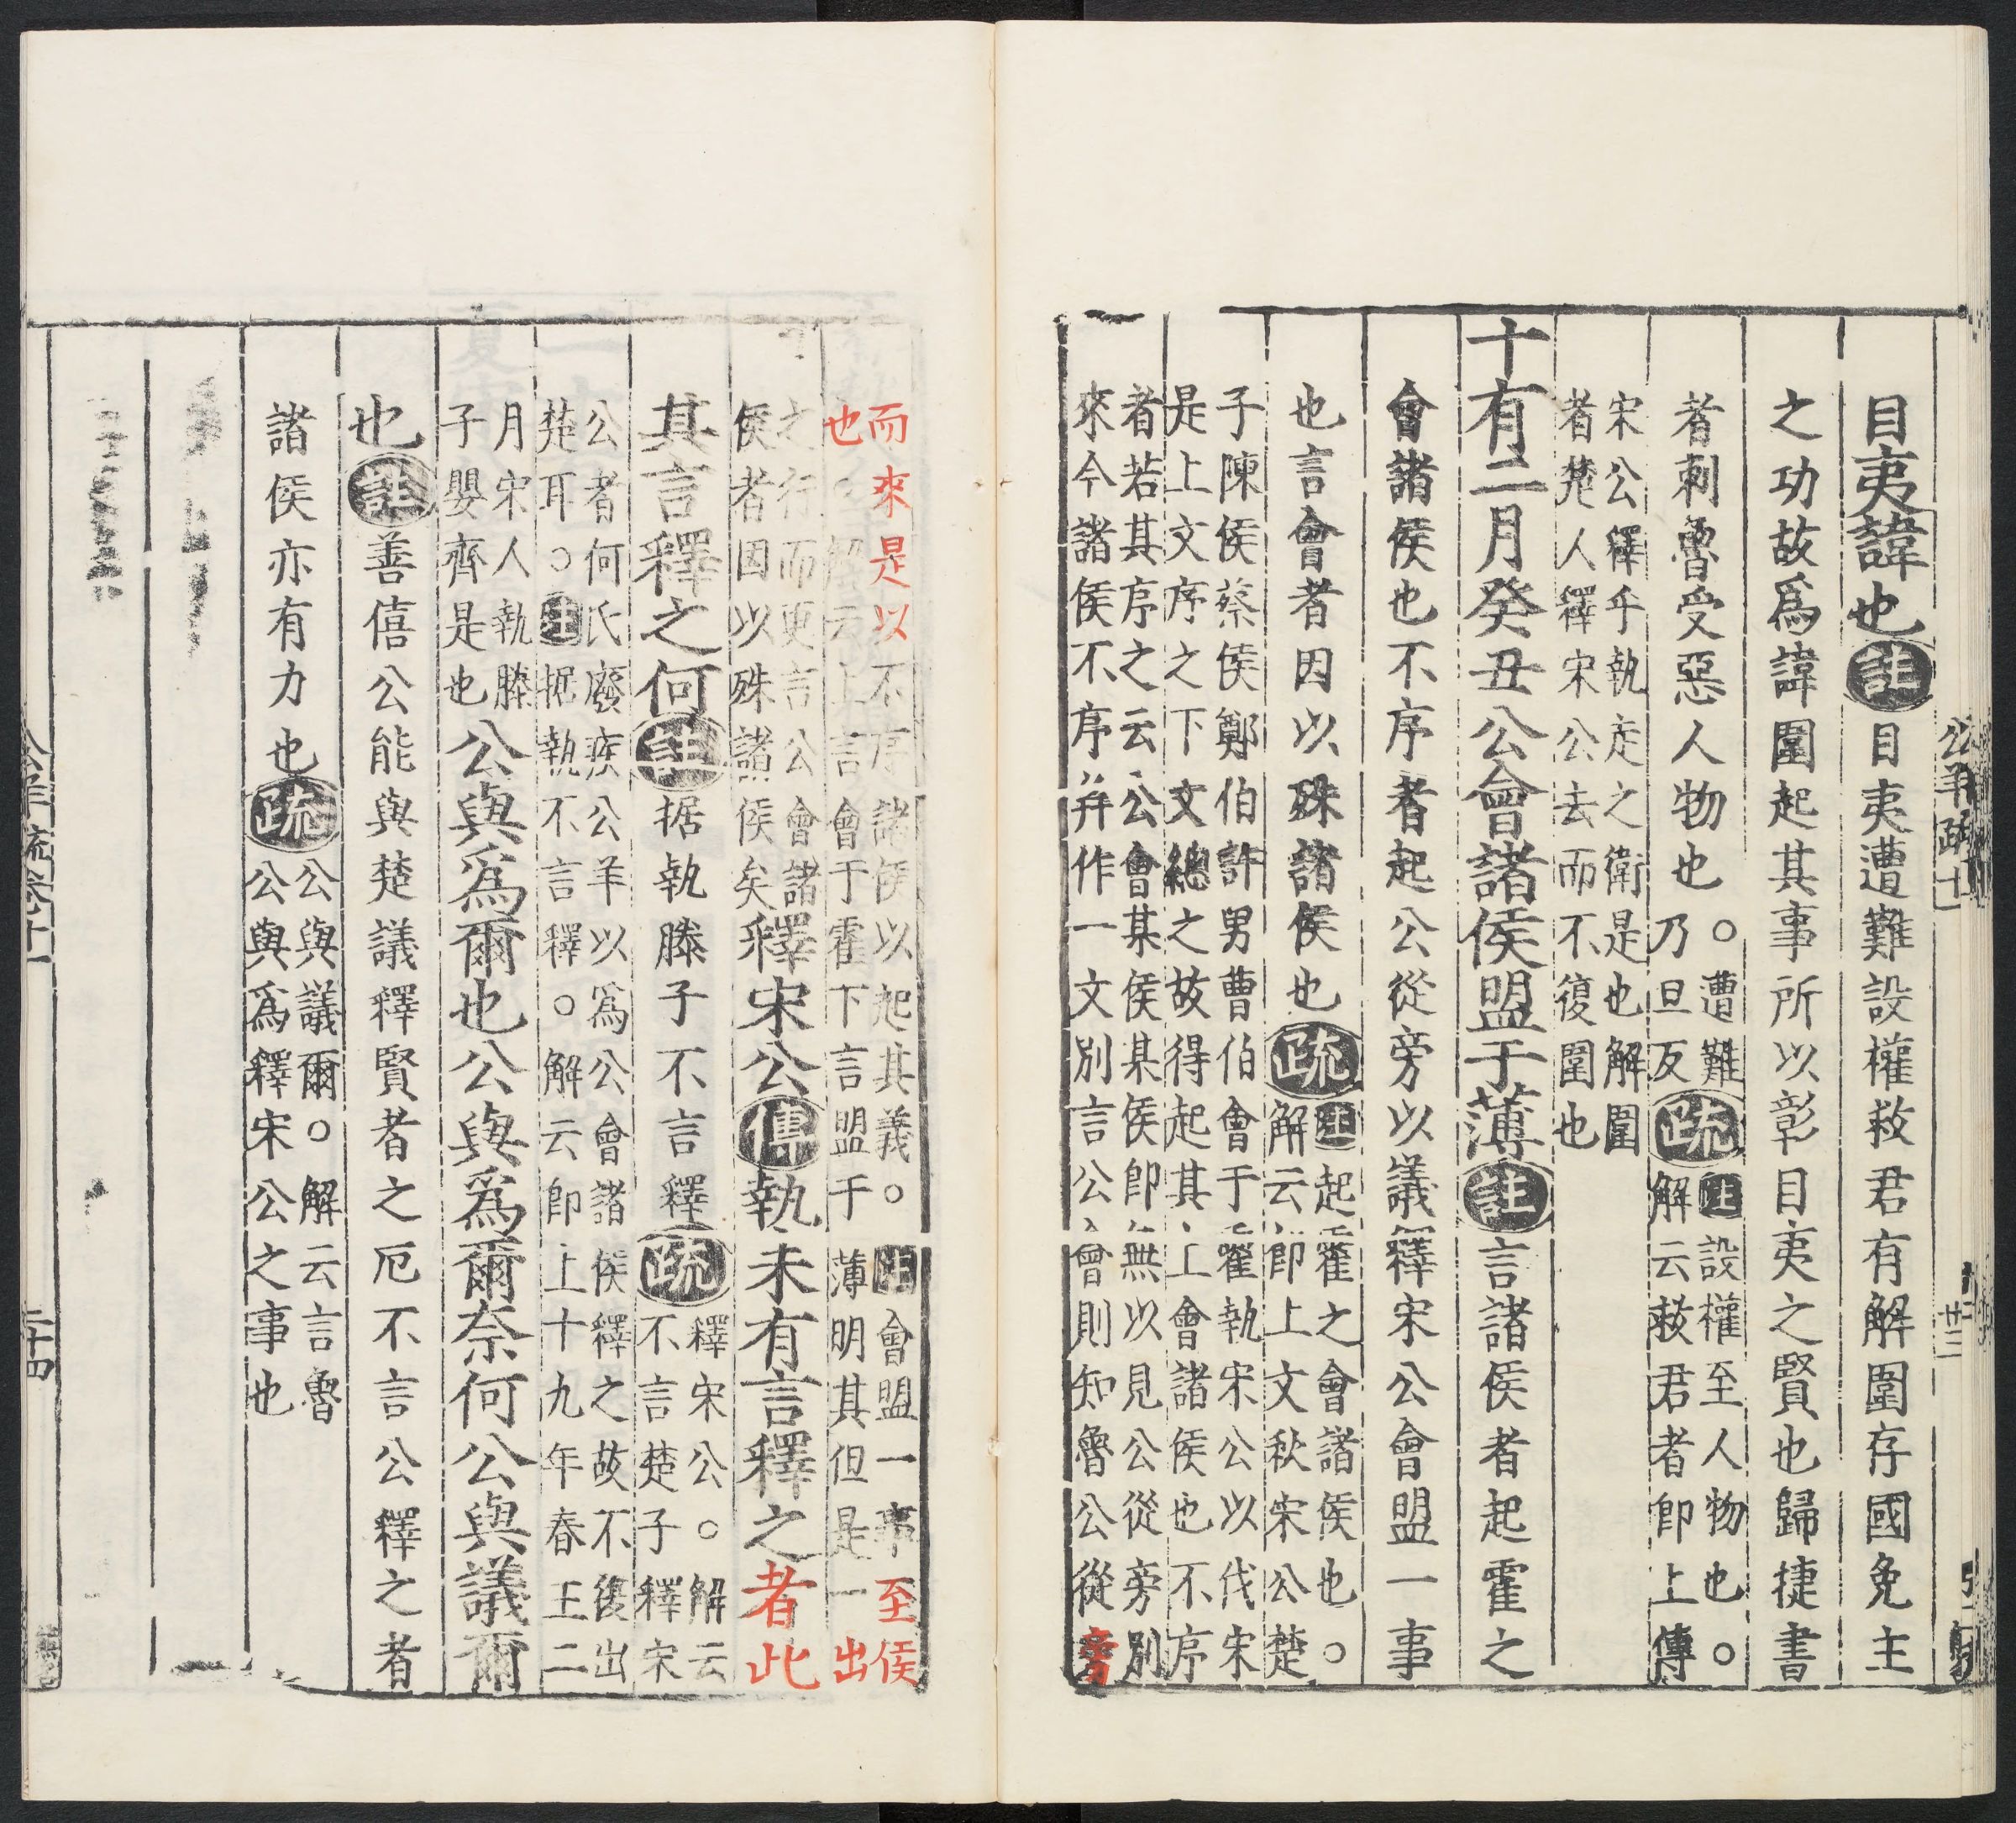 目夷諱也註目夷遭難設權救君有解圍存國免主
之功故爲諱圍起其事所以彰目夷之賢也歸捷書
者刺魯受惡人物也○遭難
乃旦反疏註設權至人物也○
解云救君者卽上傳
宋公釋乎執走之衛是也解圍
者楚人釋宋公去而不復圍也
十有二月癸丑公會諸侯盟于薄註言諸侯者起霍之
會諸侯也不序者起公從旁以議釋宋公會盟一事
也言會者因以殊諸侯也疏註起霍之會諸侯也○
解云卽上文秋宋公楚
子陳侯蔡侯鄭伯許男曹伯會于霍執宋公以伐宋
是上文序之下文總之故得起其上會諸侯也不序
者若其序之云公會某侯某侯卽無以見公從旁別
來今諸侯不序并作一文別言公會則知魯公從旁
而來是以不序諸侯以起其義○註會盟一事至侯
也 解云上言會于霍下言盟于薄明其但是一出
之行而更言公會諸
侯者因以殊諸侯矣釋宋公傳執未有言釋之者此
其言釋之何註据執滕子不言釋疏釋宋公○解云
不言楚子釋宋
公者何氏廢疾公羊以爲公會諸侯釋之故不復出
楚耳○註据執不言釋○解云卽上十九年春王二
月宋人執滕
子嬰齊是也公與爲爾也公與爲爾奈何公與議爾
也註善僖公能與楚議釋賢者之厄不言公釋之者
諸侯亦有力也疏公與議爾○解云言魯
公與爲釋宋公之事也
公羊疏十一
廿三
公羊疏卷十一
二十四